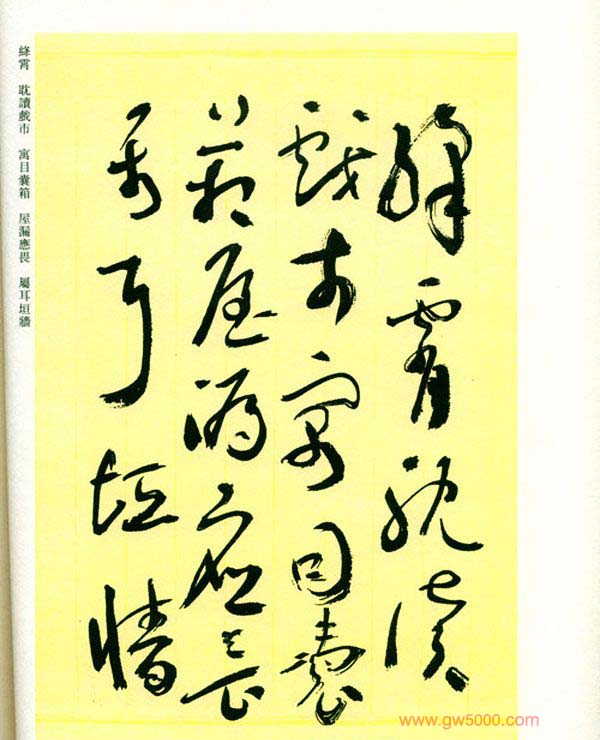 絳霄耽讀
戲市寓目囊
箱屋漏應畏
屬耳垣牆
絳霄 耽讀戲市 寓目囊箱 屋漏應畏 屬耳垣牆
www.gw5000.com